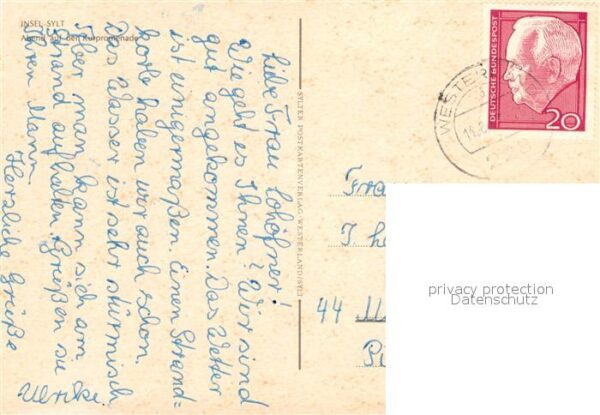 INSEL SYLT
Abend auf der Kurpromenade
Liebe Frau Lohöfner!
Wie geht es Ihnen? Wir sind
gut angekommen. Das Wetter
ist einigermaßen. Einen Strand=
korb haben wir auch schon.
Das Wasser ist sehr stürmisch
Aber man kann sich am
Strand aufhalten. Grüßen sie
Ihren Mann
Herzliche Grüße
Ulrike.
SYLTER POSTKARTENVERLAG · WESTERLAND/SYLT
DEUTSCHE BUNDESPOST
20
WESTER
Fra
44
privacy protection
Datenschutz